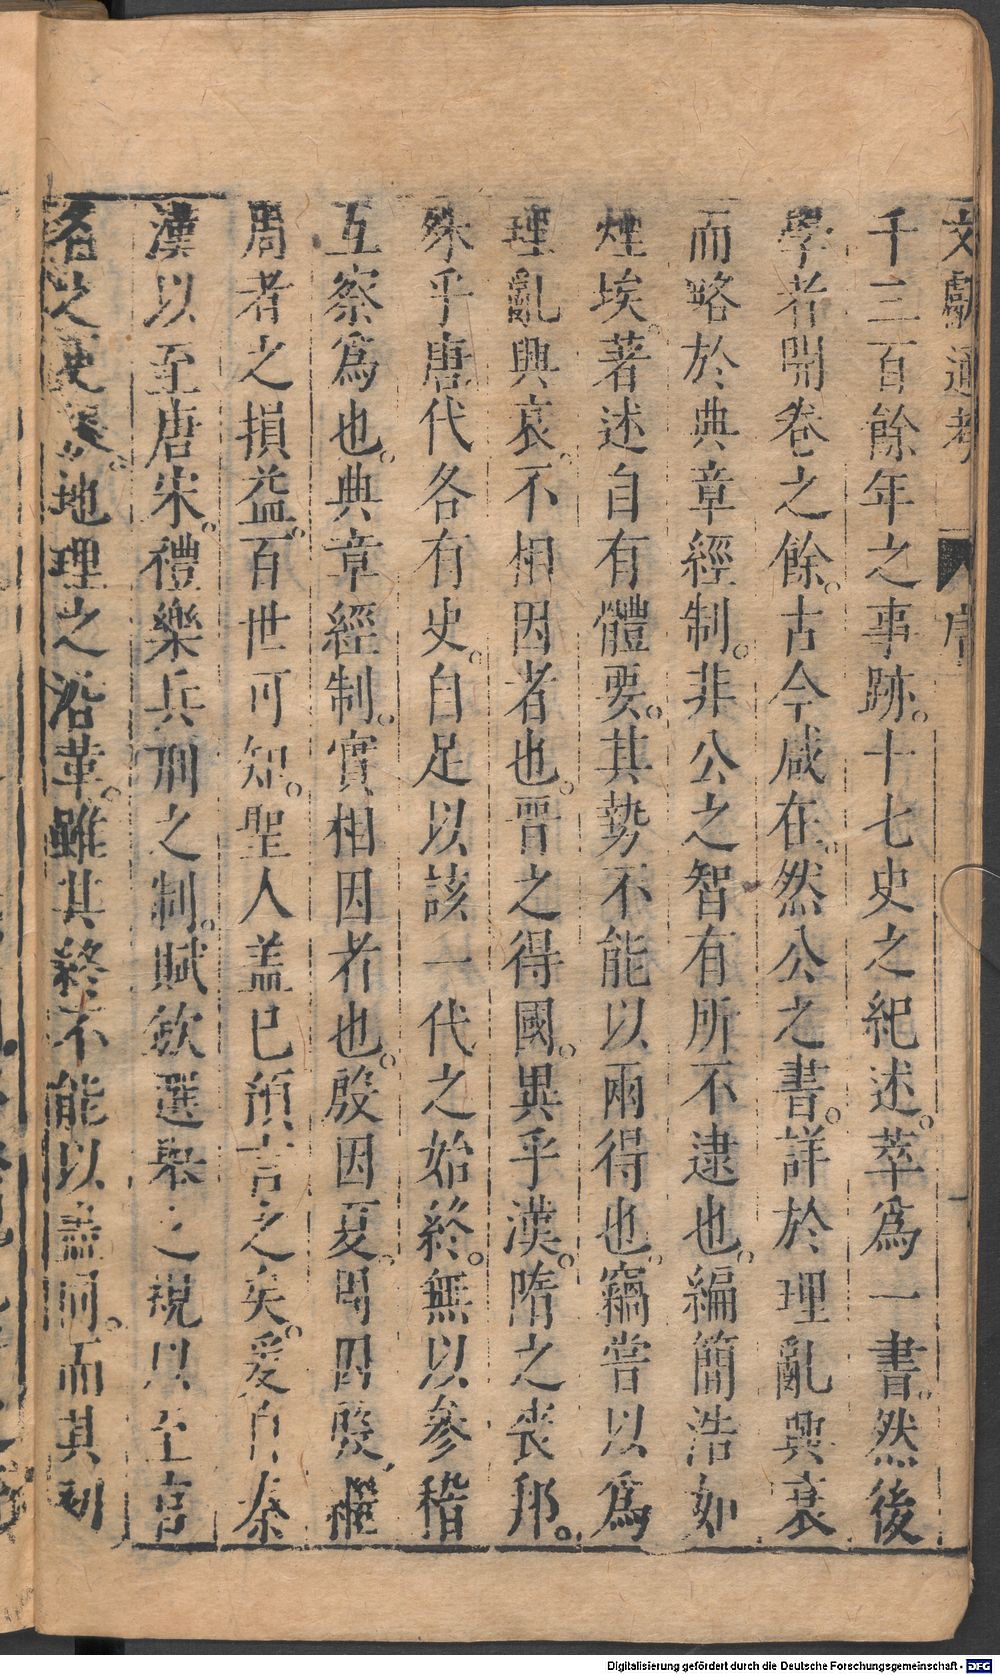 文獻通考 序 一
千三百餘年之事跡。十七史之紀述。萃爲一書。然後
學者開卷之餘。古今咸在。然公之書。詳於理亂興衰
而略於典章經制。非公之智有所不逮也。編簡浩如
煙埃。著述自有體要。其勢不能以兩得也。竊嘗以爲
理亂興衰。不相因者也。晉之得國。異乎漢。隋之喪邦。
殊乎唐。代各有史。自足以該一代之始終。無以參稽
互察爲也。典章經制。實相因者也。殷因夏。周因殷。繼
周者之損益。百世可知。聖人蓋已預言之矣。爰自秦
漢以至唐宋。禮樂兵刑之制。賦斂選舉之規以至官
名之更張。地理之沿革。雖其終不能以盡同。而其初
Digitalisierung gefördert durch die Deutsche Forschungsgemeinschaft - DFG